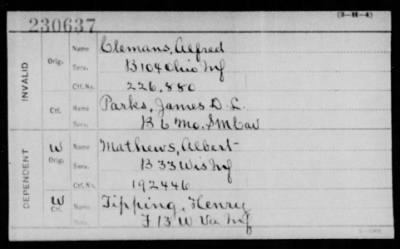 (3-H-4)
230637
INVALID
Orig.
Name Clemans, Alfred
Serv. B 104 Ohio Inf
Ctf. No. 226.880
Ctf.
Name Parks, James D. L.
Serv. B 6 Mo. S M Cav
DEPENDENT
W
Orig.
Name Mathews, Albert
Serv. B 33 Wis Inf
Ctf. No. 192446
W
Ctf.
Name Tipping, Henry
Serv. F 13 W Va Inf